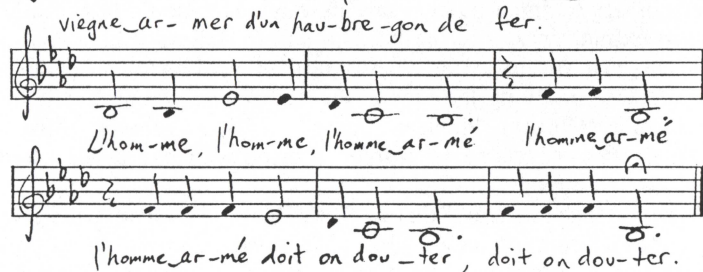 viègne_ar- mer d'un hau-bre-gon de fer.
L'hom-me, l'hom-me, l'homme_ar-mé l'homme_ar-mé
l'homme_ar-mé doit on dou-ter, doit on dou-ter.